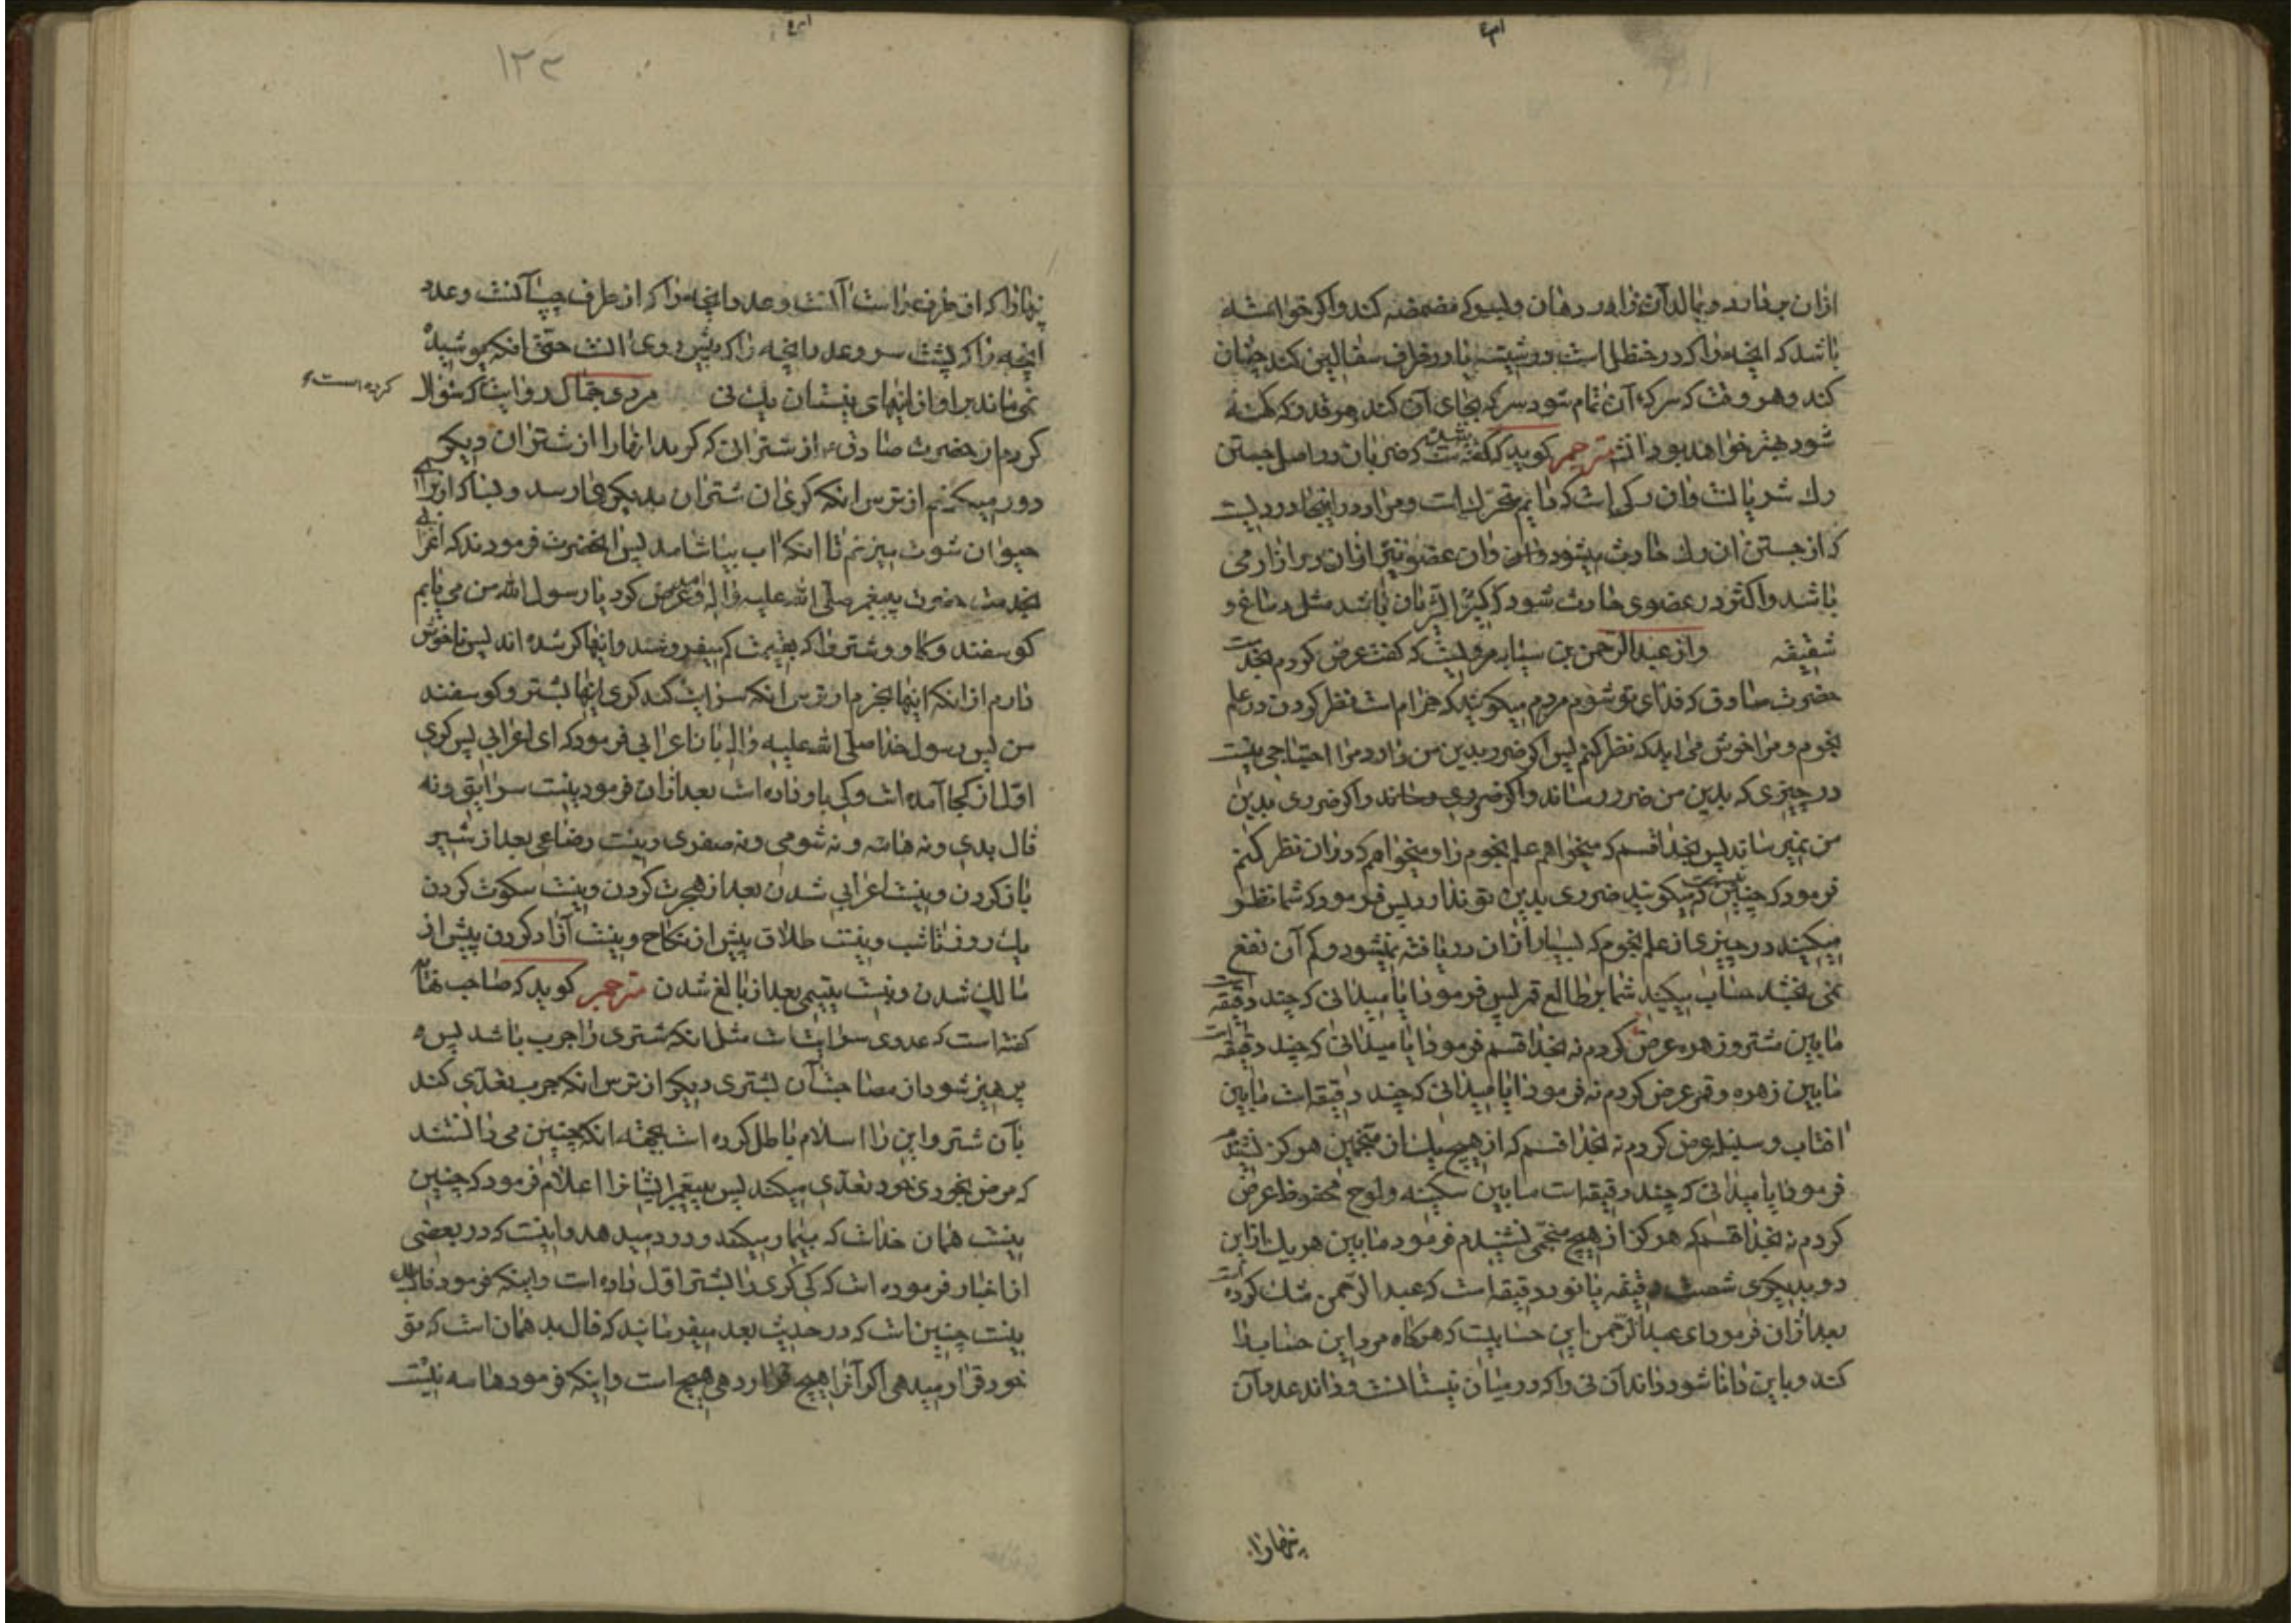 ازان بردارد و بمالد آن را در دهان و پسر که مضمضه کند و اگر خواسته
باشد که انچه را که در حنظل است در شیشه یا در ظرف سفالین کند چنان
کند و هر وقت که سرکه آن تمام شود سرکه بجای آن کند هر قدر که کهنه
شود بهتر خواهد بود انشا مترجم کوید که گفته شده که ضربان در اصل جستن
رك شریانست وان رکی است که دایم متحرك است و مراد در اینجا دردیست
که از جستن ان رك حادث میشود وان عضو نیز ازان در ازار می
باشد و اکثر در عضوی حادث شود که کثیر الشریان باشد مثل دماغ و
شقیقه وازعبدالرحمن بن سیابه مرویست که کفت عرض کردم بخدمت
حضرت صادق که فدای تو شوم مردم میکویند که حرام است نظر کردن در علم
نجوم و مرا خوش می اید که نظر کنم پس اکر ضرر بدین من دارد مرا احتیاجی نیست
در چیزی که بدین من ضرر رساند و اکر ضروری بدین
من نمیرساند پس بخدا قسم که میخواهم علم نجوم را و میخواهم که دران نظر کنم
فرمود که چنین نیست که میکویند ضرری بدین تو ندارد پس فرمود که شما نظر
میکنید در چیزی از علم نجوم که بسیار ازان دریافته نمیشود و کم آن نفع
نمی بخشد حساب میکنید شما بر طالع قمر پس فرمود ایا میدانی که چند دقیقه است
مابین مشتری و زهره عرض کردم نه بخدا قسم فرمود ایا میدانی که چند دقیقه است
مابین زهره و قمر عرض کردم نه فرمود ایا میدانی که چند دقیقه است مابین
افتاب و سنبله عرض کردم نه بخدا قسم که از هیچ یك از منجمین هرکز نشنیدم
فرمود ایا میدانی که چند دقیقه است مابین سکینه و لوح محفوظ عرض
کردم نه بخدا قسم که هرکز از هیچ منجمی نشنیدم فرمود مابین هر یك ازاین
دو بدیکری شصت دقیقه یا نود دقیقه است که عبدالرحمن شك کرده است
بعد ازان فرمود ای عبدالرحمن این حسابیست که هرکاه مرد این حساب را
کند و باین دانا شود داند آن نی را که در میان نیستانست و داند عدد آن
نیهارا
نیهارا که از طرف راست آنست و عدد انچه را که از طرف چپ آنست و عدد
انچه را که پشت سر و عدد انچه را که پیش روی انست حتی انکه پوشیده
نمی ماند بر او از نیهای نیستان یك نی مردی جمال روایت کرده است که سؤال
کردم از حضرت صادق ع از شتران که کر بد انهارا از شتران دیکر
دور میکنم از ترس انکه کری ان شتران بدیکری فارسد و بسا که از برای
حیوان سوت میزنم تا انکه اب بیاشامد پس انحضرت فرمودند که اعرابی
بخدمت حضرت پیغمبر صلی الله علیه واله آمد و عرض کرد یا رسول الله من می یابم
کوسفند و کاو و شتر را که بقیمت کم میفروشند و انها کر شده اند پس ناخوش
دارم از انکه اینها بخرم از ترس انکه سرایت کند کری اینها بشتر و کوسفند
من پس رسول خدا صلی الله علیه واله با ناعرابی فرمود که ای اعرابی پس کری
اول از کجا آمده است و کی باو داده است بعد ازان فرمود نیست سرایتی و نه
فال بدی و نه هامه و نه شومی و نه صفری و نیست رضاعی بعد از شیر
باز کردن و نیست اعرابی شدن بعد از هجرت کردن و نیست سکوت کردن
یك روز تا شب و نیست طلاق پیش از نکاح و نیست آزاد کردن پیش از
مالك شدن و نیست یتیمی بعد از بالغ شدن مترجم کوید که صاحب نها
کفته است که عدوی سرایت است مثل انکه شتری را جرب باشد پس
پرهیز شود از مصاحبت آن بشتری دیکر از ترس انکه جرب تعدی کند
بآن شتر و این را اسلام باطل کرده است بجهة انکه چنین می دانستند
که مرض بخودی خود تعدی میکند پس پیغمبر ایشانرا اعلام فرمود که چنین
نیست همان خداست که بیمار میکند و درد میدهد و اینست که در بعضی
از اخبار فرموده است که کی کری را بشتر اول داده است و اینکه فرمود فال بد
نیست چنین است که در حدیث بعد میفرماید که فال بد همان است که تو
خود قرار میدهی اکر آنرا هیچ قرار دهی هیچ است و اینکه فرمود هامه نیست
کرده است
۱۲۳